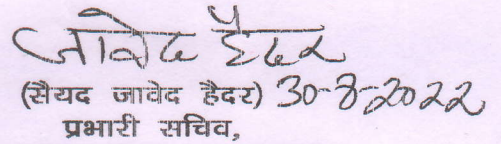 जावेद हैदर
(सैयद जावेद हैदर) 30-8-2022
प्रभारी सचिव,